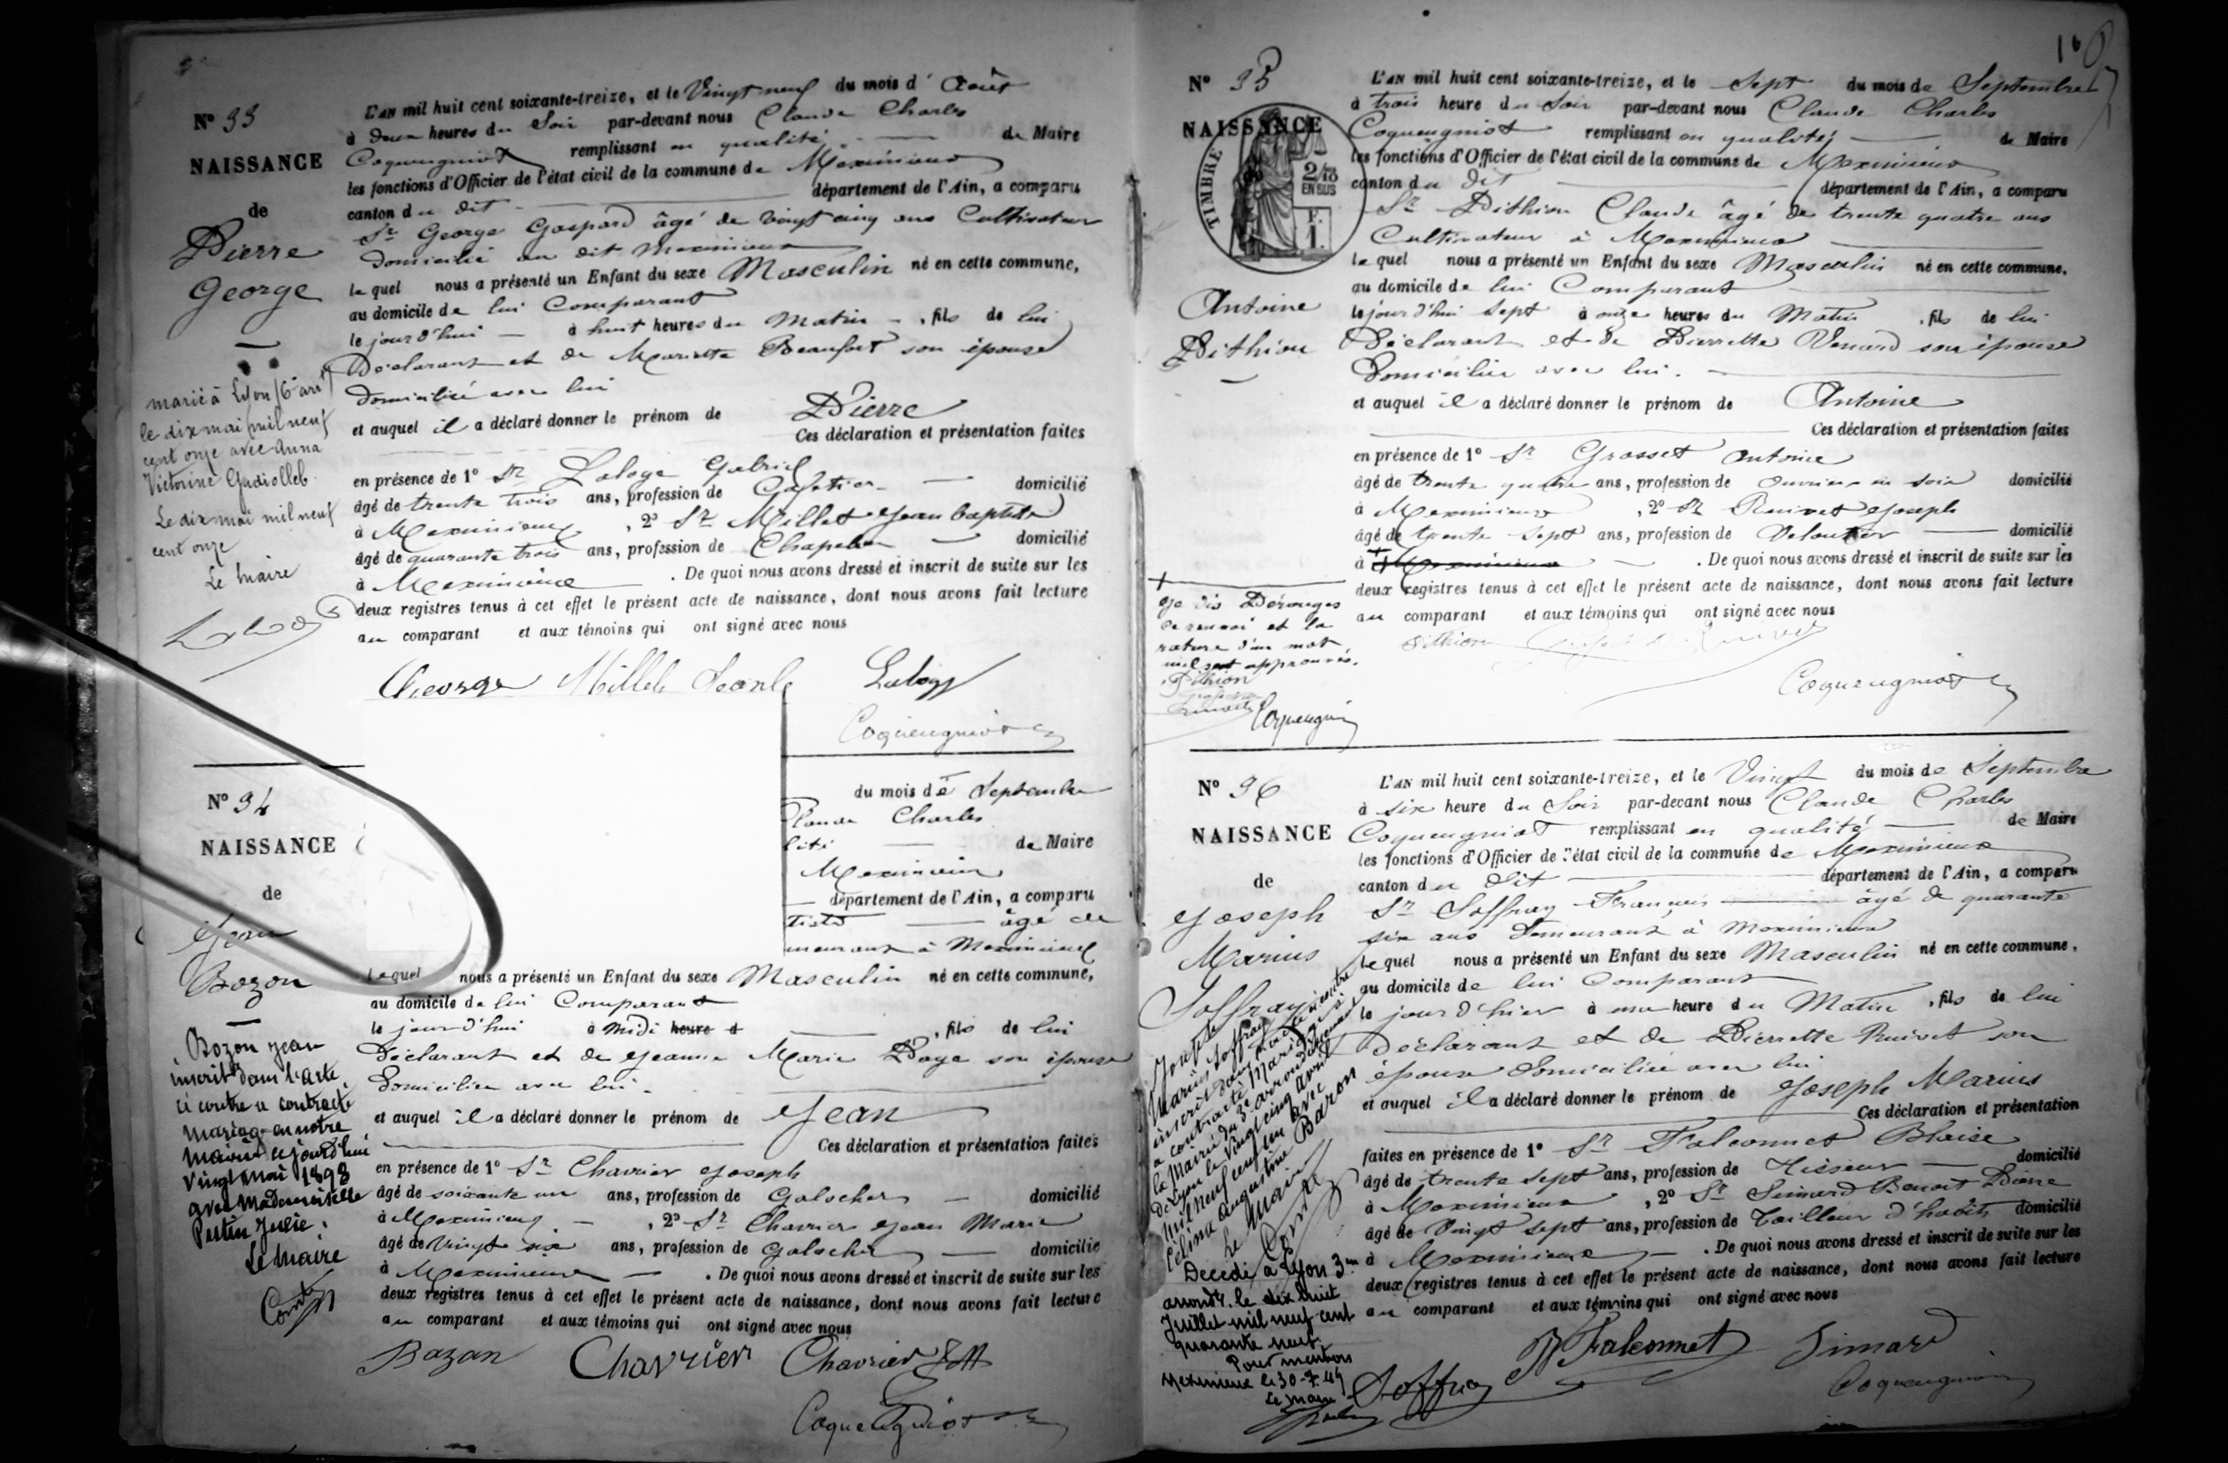 N° 33
NAISSANCE
de
Pierre
George
marié à Lyon (6e arrt)
le dix mai mil neuf
cent onze avec Anna
Victorine
Le dix mai mil neuf
cent onze
Le Maire
L'AN mil huit cent soixante-treize, et le Vingt neuf du mois d'Août
à deux heures du Soir par-devant nous Claude Charles
Coquengniot remplissant en qualité de Maire
les fonctions d'Officier de l'état civil de la commune de Meximieux
canton du dit département de l'Ain, a comparu
Sr George Gaspard âgé de vingt cinq ans Cultivateur
domicilié au dit Meximieux
lequel nous a présenté un Enfant du sexe Masculin né en cette commune,
au domicile de lui Comparant
le jour d'hui à huit heures du Matin, fils de lui
Déclarant et de Mariette Beaufort son épouse
domiciliée avec lui
et auquel il a déclaré donner le prénom de Pierre
Ces déclaration et présentation faites
en présence de 1° Sr Laloge Gabriel
âgé de trente trois ans, profession de domicilié
à Meximieux, 2° Sr Millet Jean baptiste
âgé de quarante trois ans, profession de Chapelier domicilié
à Meximieux. De quoi nous avons dressé et inscrit de suite sur les
deux registres tenus à cet effet le présent acte de naissance, dont nous avons fait lecture
au comparant et aux témoins qui ont signé avec nous
George Millet Laloge
Coquengniot
N° 34
NAISSANCE
de
Jean
Bozon
Bozon Jean
inscrit dans l'acte
ci contre a contracté
mariage en notre
Mairie ce jourd'hui
vingt mai 1898
avec Mademoiselle
Julie.
Le Maire
du mois de Septembre
Claude Charles
lité de Maire
Meximieux
département de l'Ain, a comparu
tiste âgé de
meurant à Meximieux
lequel nous a présenté un Enfant du sexe Masculin né en cette commune,
au domicile de lui Comparant
le jour d'hui à midi heure d, fils de lui
Déclarant et de Jeanne Marie Page son épouse
domiciliée avec lui
et auquel il a déclaré donner le prénom de Jean
Ces déclaration et présentation faites
en présence de 1° Sr Chavrier Joseph
âgé de soixante un ans, profession de Galocher domicilié
à Meximieux, 2° Sr Chavrier Jean Marie
âgé de vingt six ans, profession de Galocher domicilié
à Meximieux. De quoi nous avons dressé et inscrit de suite sur les
deux registres tenus à cet effet le présent acte de naissance, dont nous avons fait lecture
au comparant et aux témoins qui ont signé avec nous
Bozon Chavrier Chavrier
Coquengniot
N° 35
NAISSANCE
TIMBRE
2/10
EN SUS
F.
1.
Antoine
Pithiou
L'AN mil huit cent soixante-treize, et le Sept du mois de Septembre
à trois heure du Soir par-devant nous Claude Charles
Coquengniot remplissant en qualité de Maire
les fonctions d'Officier de l'état civil de la commune de Meximieux
canton du dit département de l'Ain, a comparu
Sr Pithiou Claude âgé de trente quatre ans
Cultivateur à Meximieux
lequel nous a présenté un Enfant du sexe Masculin né en cette commune,
au domicile de lui Comparant
le jour d'hui sept à onze heures du Matin, fils de lui
Déclarant et de Pierrette Venard son épouse
domiciliée avec lui.
et auquel il a déclaré donner le prénom de Antoine
Ces déclaration et présentation faites
en présence de 1° Sr Grosset Antoine
âgé de trente quatre ans, profession de ouvrier en soie domicilié
à Meximieux, 2° Sr Ruivet Joseph
âgé de trente sept ans, profession de Veloutier domicilié
à Meximieux. De quoi nous avons dressé et inscrit de suite sur les
deux registres tenus à cet effet le présent acte de naissance, dont nous avons fait lecture
au comparant et aux témoins qui ont signé avec nous
Je dis Pérouges
ce renvoi et la
rature d'un mot
nul sont approuvés.
Pithiou
Coquengniot
Coquengniot
N° 36
NAISSANCE
de
Joseph
Marius
Soffray
L'AN mil huit cent soixante-treize, et le Vingt du mois de Septembre
à six heure du Soir par-devant nous Claude Charles
Coquengniot remplissant en qualité de Maire
les fonctions d'Officier de l'état civil de la commune de Meximieux
canton du dit département de l'Ain, a comparu
Sr Soffray François âgé de quarante
six ans demeurant à Meximieux
lequel nous a présenté un Enfant du sexe Masculin né en cette commune,
au domicile de lui Comparant
le jour d'hier à une heure du Matin, fils de lui
Déclarant et de Pierrette Ruivet son
épouse domiciliée avec lui
et auquel il a déclaré donner le prénom de Joseph Marius
Ces déclaration et présentation
faites en présence de 1° Sr Falconnet Blaise
âgé de trente sept ans, profession de Tisseur domicilié
à Meximieux, 2° Sr Simard Benoit Pierre
âgé de Vingt sept ans, profession de Tailleur d'habits domicilié
à Meximieux. De quoi nous avons dressé et inscrit de suite sur les
deux registres tenus à cet effet le présent acte de naissance, dont nous avons fait lecture
au comparant et aux témoins qui ont signé avec nous
Joseph
Marius Soffray
inscrit dans l'acte ci contre
a contracté Mariage à
la Mairie du 3e arrondissement
de Lyon le vingt cinq avril
mil neuf cent un avec
Célina Augustine Baron
Le Maire
Décédé à Lyon 3me
arrondt. le dix huit
Juillet mil neuf cent
quarante neuf.
Pour mention
Meximieux le 30-7-49
Le Maire
Soffray Falconnet Simard
Coquengniot